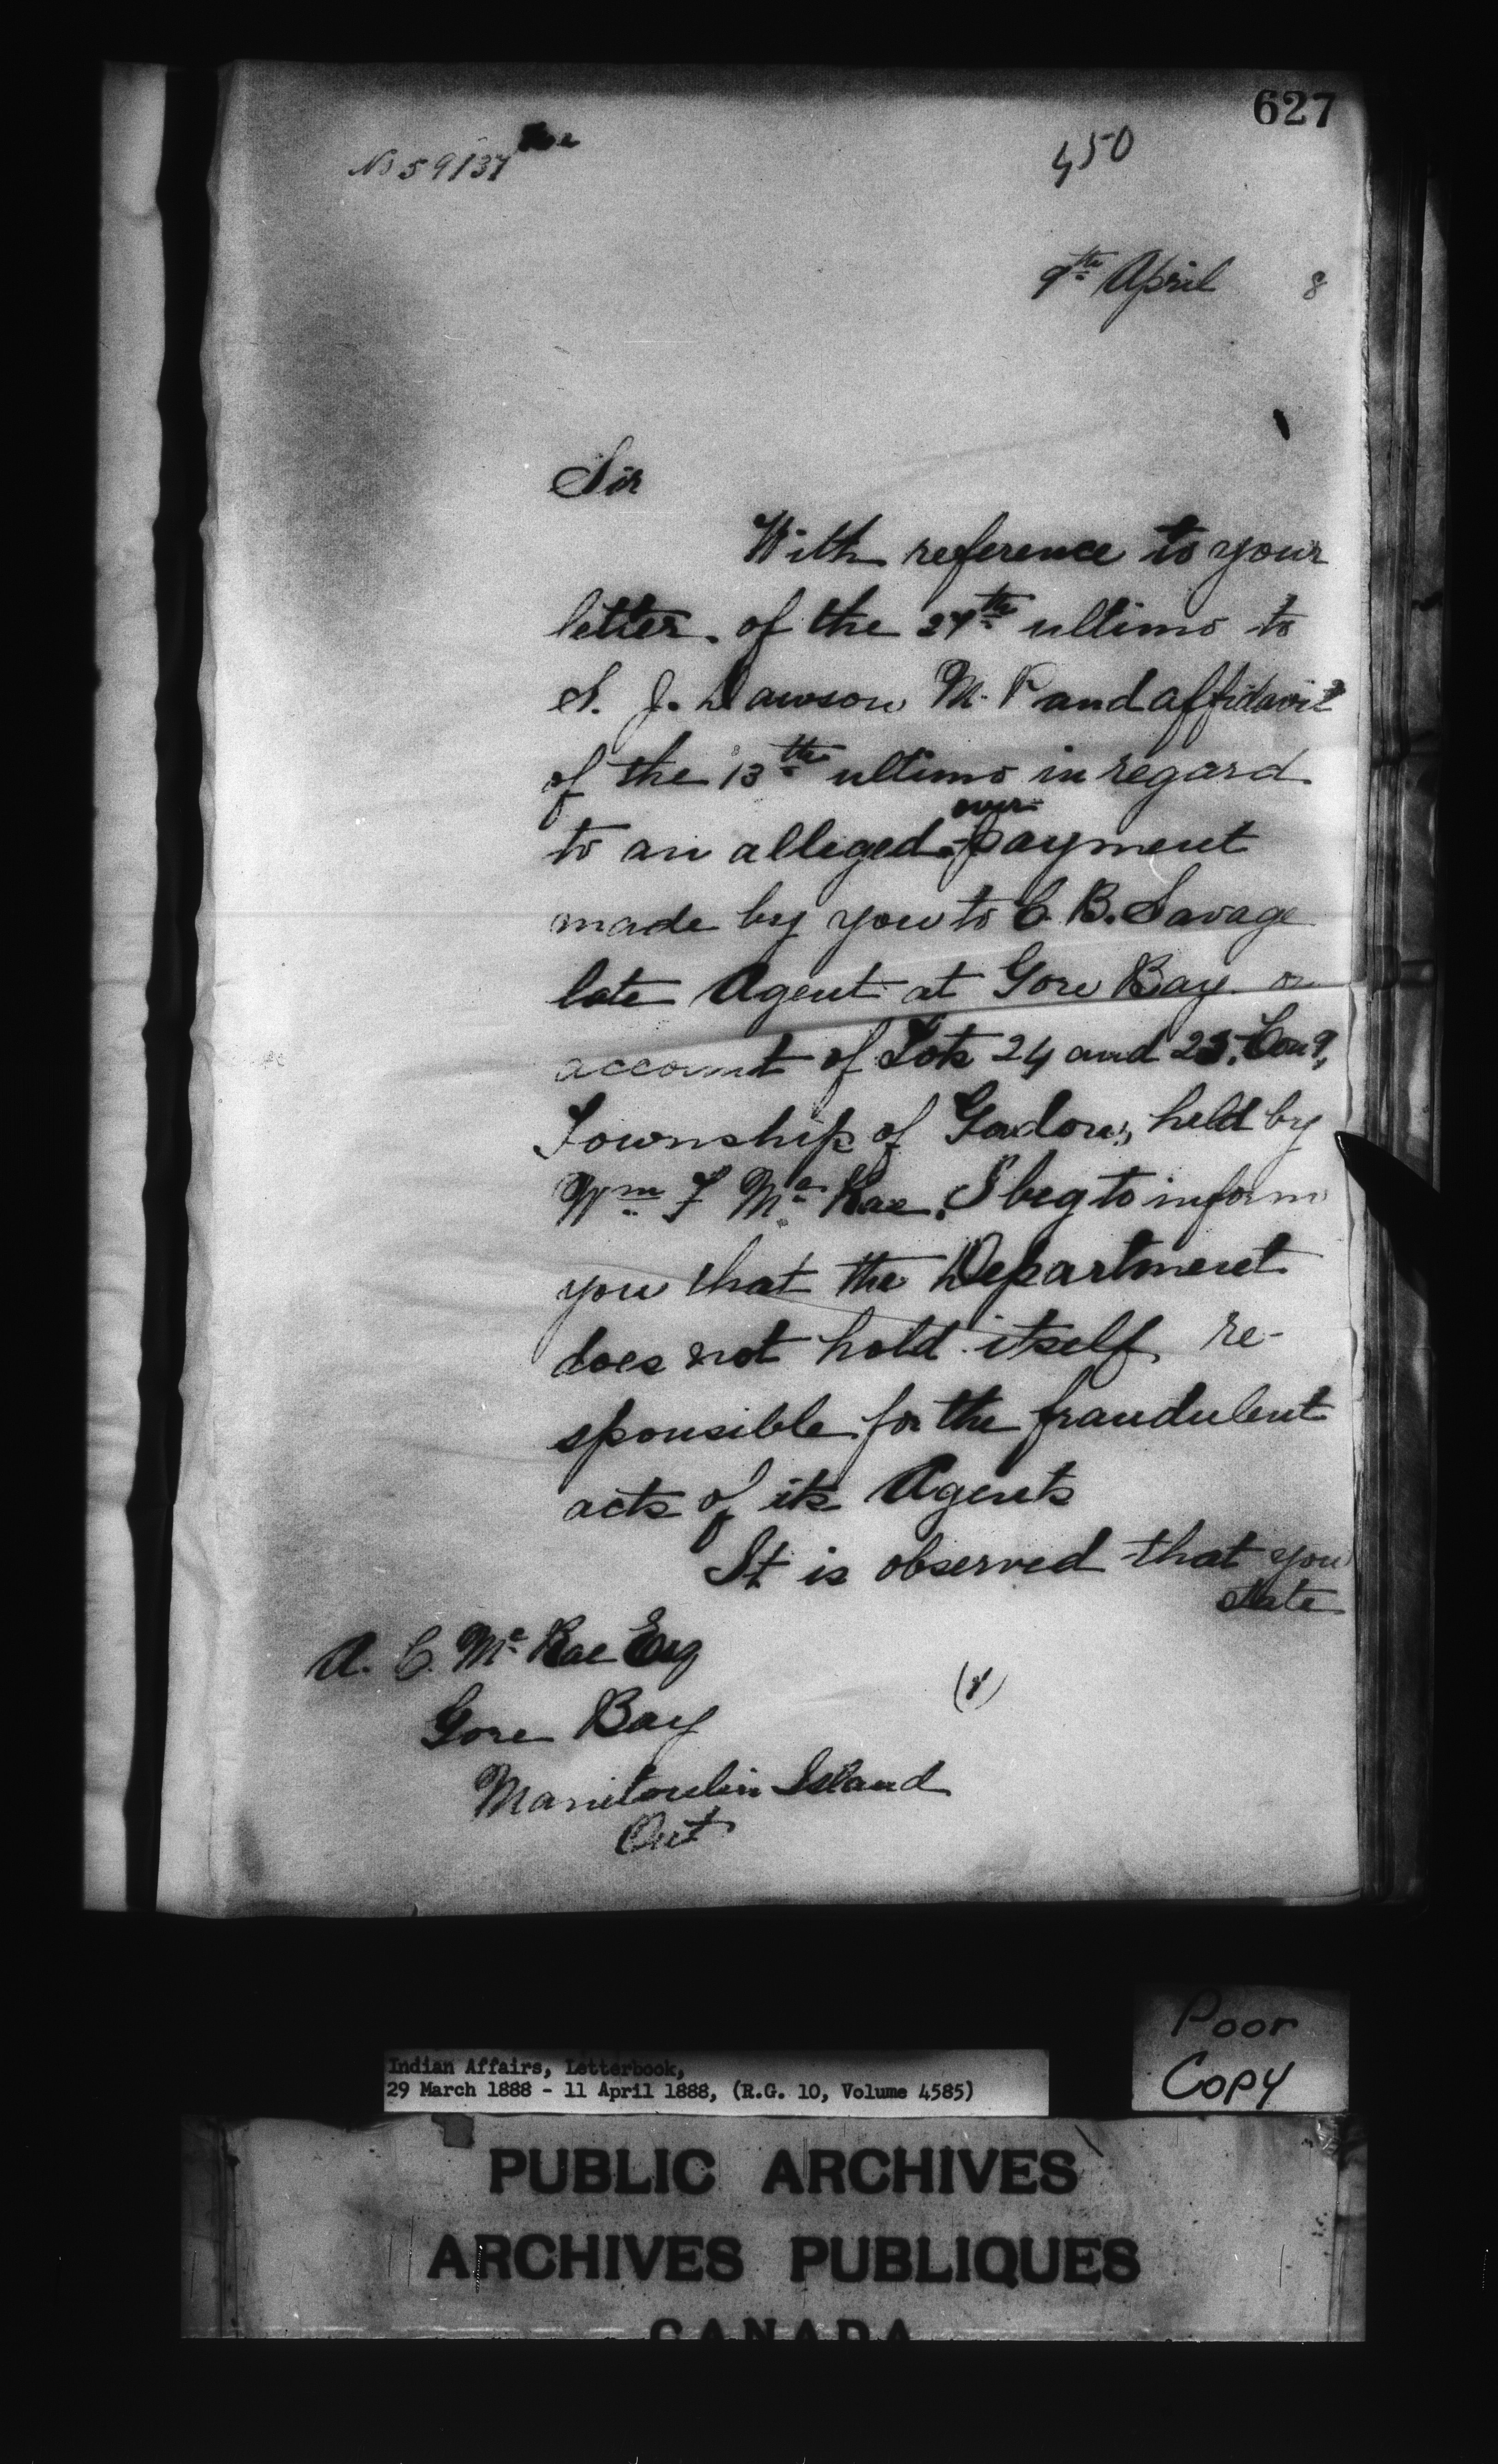 627
No 59137
450
9th April 8
Sir
With reference to your
letter. of the 27th ultimo to
S. J. Dawson M. P and affidavit
of the 13th ultimo in regard
over-
to an alleged payment
made by you to C. B. Savage
late Agent at Gore Bay on
account of Lots 24 and 25. Con 9,
Township of held by
Wm F McRae, I beg to inform
you that the Department
does not hold itself re-
sponsible for the fraudulent
acts of its Agents
It is observed that you
state
A. C. McRae Esq
Gore Bay
Manitoulin Island
Ont
Poor
Copy
Indian Affairs, Letterbook,
29 March 1888 - 11 April 1888, (R.G. 10, Volume 4585)
PUBLIC ARCHIVES
ARCHIVES PUBLIQUES
CANADA